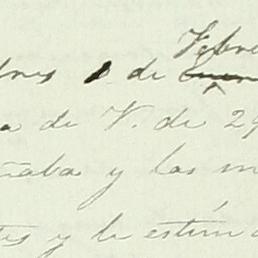 Febre
dres 1 de Enero
a de V. de 29
ñaba y las m
tes y le estim